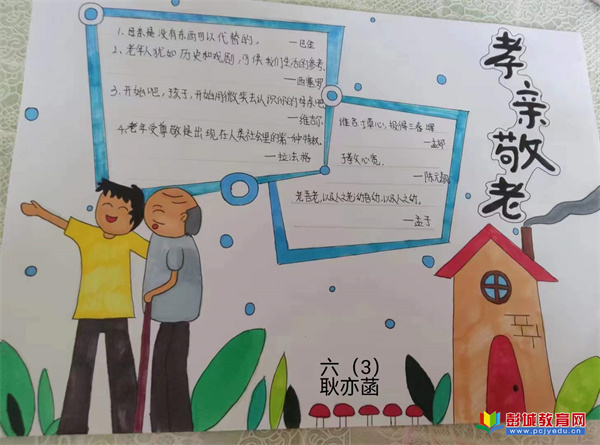 孝亲敬老
1、母亲是没有东西可以代替的。
—巴金
2、老年人犹如历史和戏剧,可供我们生活的参考。
—西塞罗
3、开始吧,孩子,开始用微笑去认识你的母亲吧
—维吉尔
4、老年受尊敬是出现在人类社会里的第一种特权。
—拉法格
谁言寸草心,报得三春晖
—孟郊
孝父心宽,
—陈元靓
老吾老,以及人之老幼吾幼,以及人之幼。
—孟子
六(3)
耿亦菡
彭城教育网
www.pcjyedu.cn